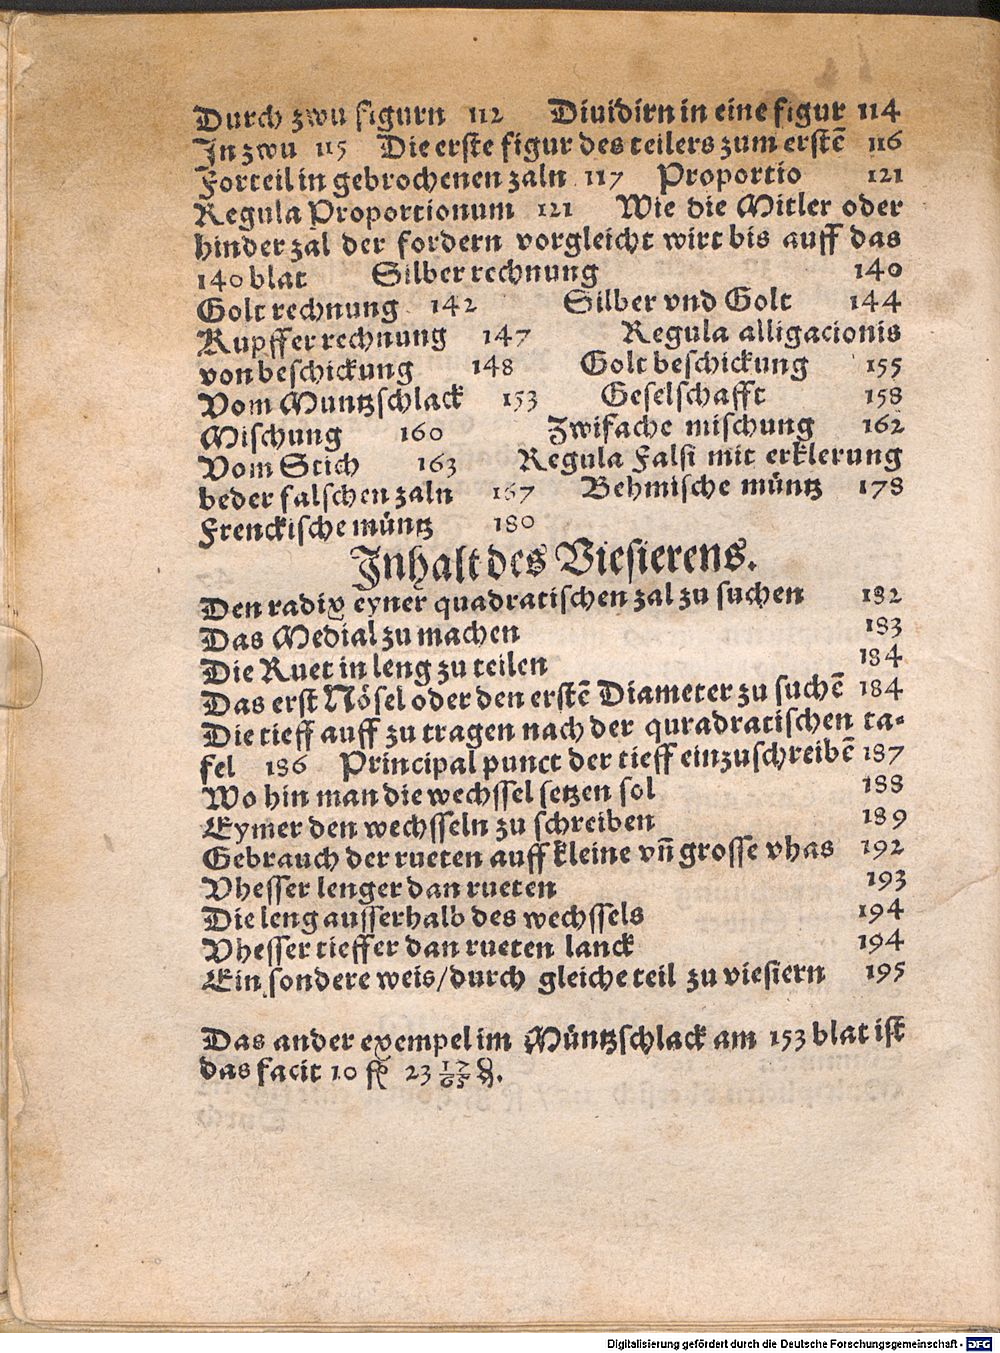 Durch zwu figurn 112 Diuidirn in eine figur 114
In zwu 115 Die erste figur des teilers zum erstē 116
Forteil in gebrochenen zaln 117 Proportio 121
Regula Proportionum 121 Wie die Mitler oder
hinder zal der fordern vorgleicht wirt bis auff das
140 blat Silber rechnung 140
Golt rechnung 142 Silber vnd Golt 144
Kupffer rechnung 147 Regula alligacionis
von beschickung 148 Golt beschickung 155
Vom Muntzschlack 153 Geselschafft 158
Mischung 160 Zwifache mischung 162
Vom Stich 163 Regula Falsi mit erklerung
beder falschen zaln 167 Behmische müntz 178
Frenckische müntz 180
Inhalt des Viesierens.
Den radix eyner quadratischen zal zu suchen 182
Das Medial zu machen 183
Die Ruet in leng zu teilen 184
Das erst Nösel oder den erstē Diameter zu suchē 184
Die tieff auff zu tragen nach der quradratischen ta-
fel 186 Principal punct der tieff einzuschreibē 187
Wo hin man die wechssel setzen sol 188
Eymer den wechsseln zu schreiben 189
Gebrauch der rueten auff kleine vn̄ grosse vhas 192
Vhesser lenger dan rueten 193
Die leng ausserhalb des wechssels 194
Vhesser tieffer dan rueten lanck 194
Ein sondere weis/durch gleiche teil zu viesiern 195
Das ander exempel im Müntzschlack am 153 blat ist
das facit 10 ſꝭ 23 17/63 ₰.
Digitalisierung gefördert durch die Deutsche Forschungsgemeinschaft - DFG